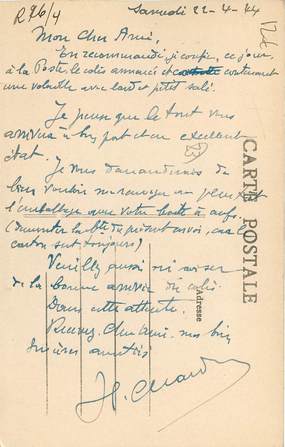 R 26/4
Samedi 22-4-44
Mon Cher Ami,
En recommandé, je confie, ce jour,
à la Poste, le colis annoncé et contenant
une volaille avec lard et petit salé.
Je pense que le tout vous
arrivera à bon port et en excellent
état.
Je vous demanderais de
bien vouloir me renvoyer
l'emballage avec votre boîte à œufs.
(démonter la bte du présent envoi, car
carton sert toujours)
Veuillez aussi m'aviser
de la bonne arrivée du colis.
Dans cette attente.
Recevez, Cher Ami, nos bien
sincères amitiés
CARTE POSTALE
Adresse